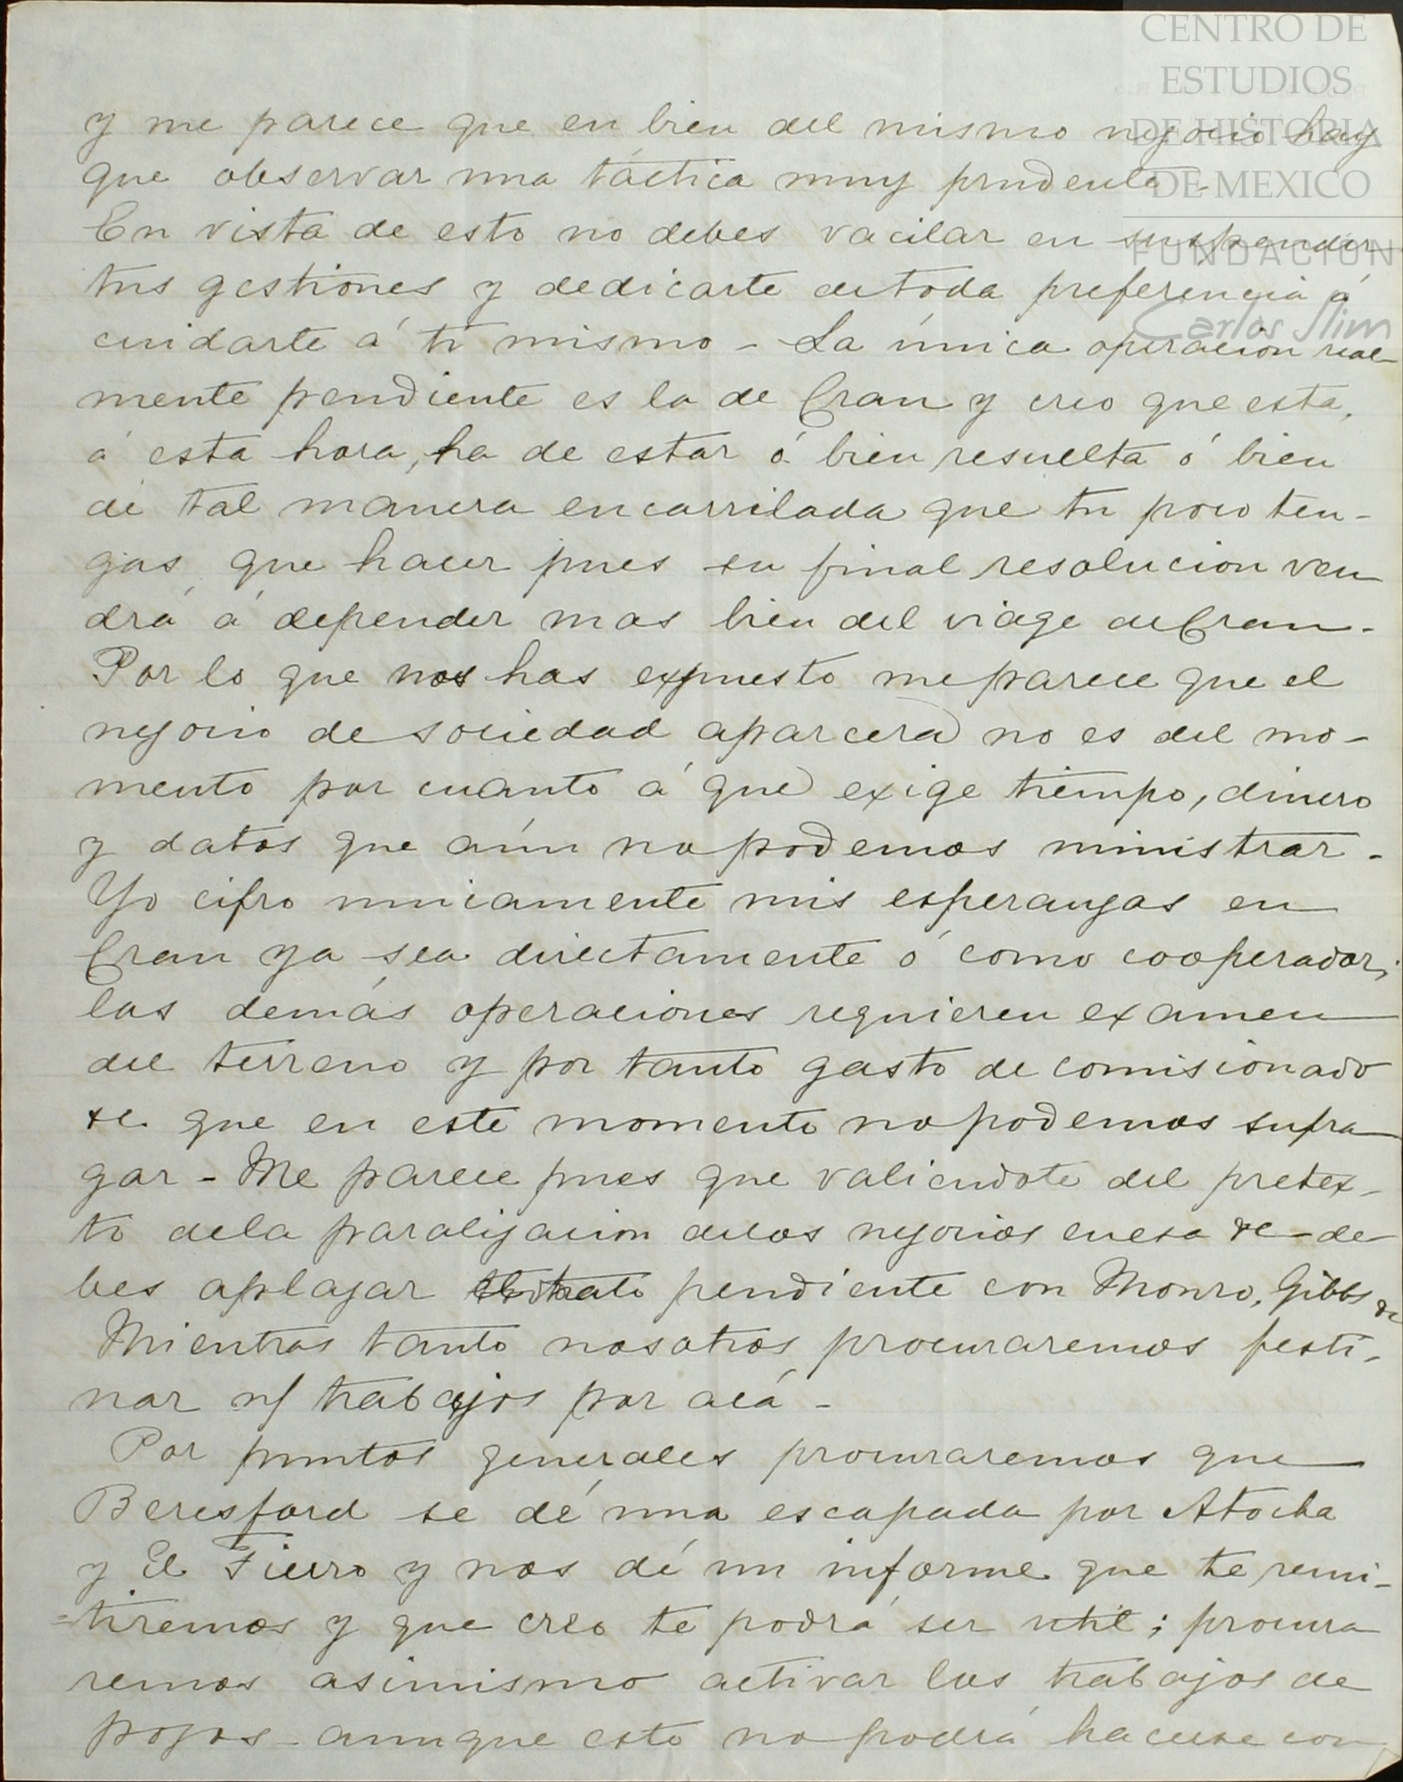 CENTRO DE
ESTUDIOS
DE HISTORIA
DE MEXICO
FUNDACIÓN
Carlos Slim
y me parece que en bien del mismo negocio hay
que observar una táctica muy prudente -
En vista de esto no debes vacilar en suspender
tus gestiones y dedicarte de toda preferencia á
cuidarte á ti mismo - La única operacion real-
mente pendiente es la de Cran y creo que esta,
á esta hora, ha de estar ó bien resuelta ó bien
de tal manera encarrilada que tu poco ten-
gas que hacer pues su final resolucion ven
drá á depender mas bien del viage de Cran -
Por lo que nos has expuesto me parece que el
negocio de sociedad aparcera no es del mo-
mento por cuanto á que exige tiempo, dinero
y datos que aún no podemos ministrar -
Yo cifro unicamente mis esperanzas en
Cran ya sea directamente ó como cooperador;
las demás operaciones requieren examen
del terreno y por tanto gasto de comisionado
&c que en este momento no podemos sufra
gar - Me parece pues que valiendote del pretex-
to dela paralizacion delos negocios en esa &c - de
bes aplazar pendiente con Monro, Gibbs &c
Mientras tanto nosotros procuraremos festi-
nar n/ trabajos por acá -
Por puntos generales procuraremos que
Beresford se dé una escapada por Atocha
y El Fierro y nos dé un informe que te remi-
=tiremos y que creo te podrá ser util; procura
remos asimismo activar los trabajos de
pozos - aunque esto no podrá hacerse con